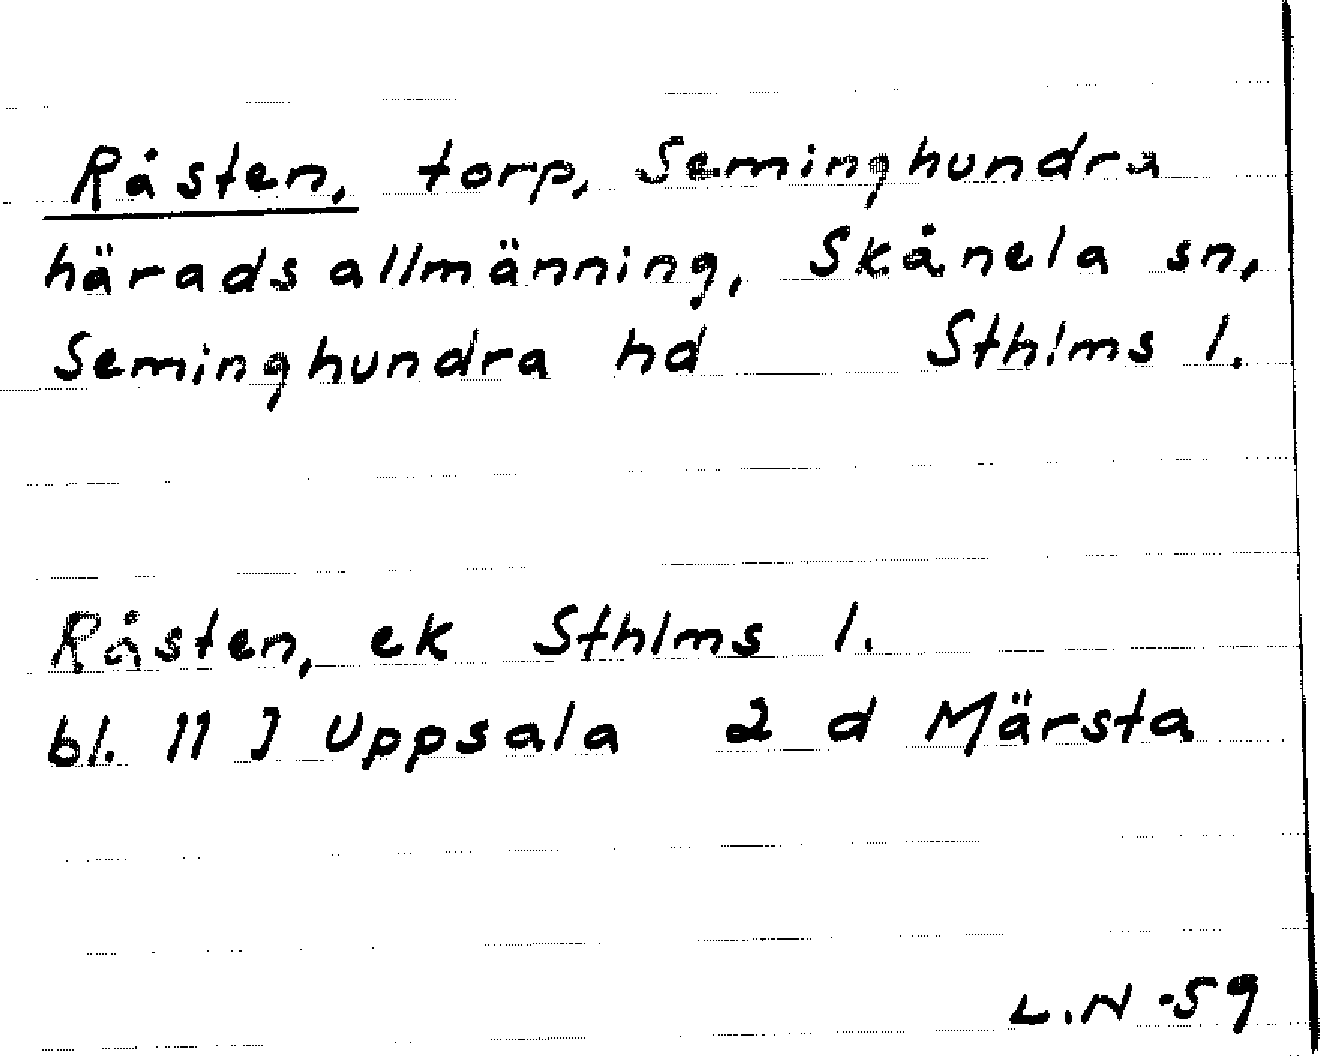 Råsten, torp, Seminghundra
häradsallmänning, Skånela sn,
Seminghundra hd Sthlms l.
Råsten, ek Sthlms l.
bl. 11 J Uppsala 2 d Märsta
L.N -59